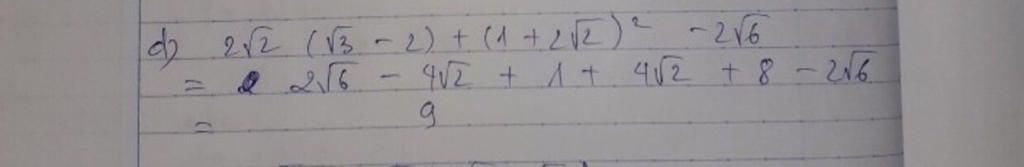 d) 2√2 (√3 - 2) + (1 + 2√2)² - 2√6
= 2√6 - 4√2 + 1 + 4√2 + 8 - 2√6
= 9